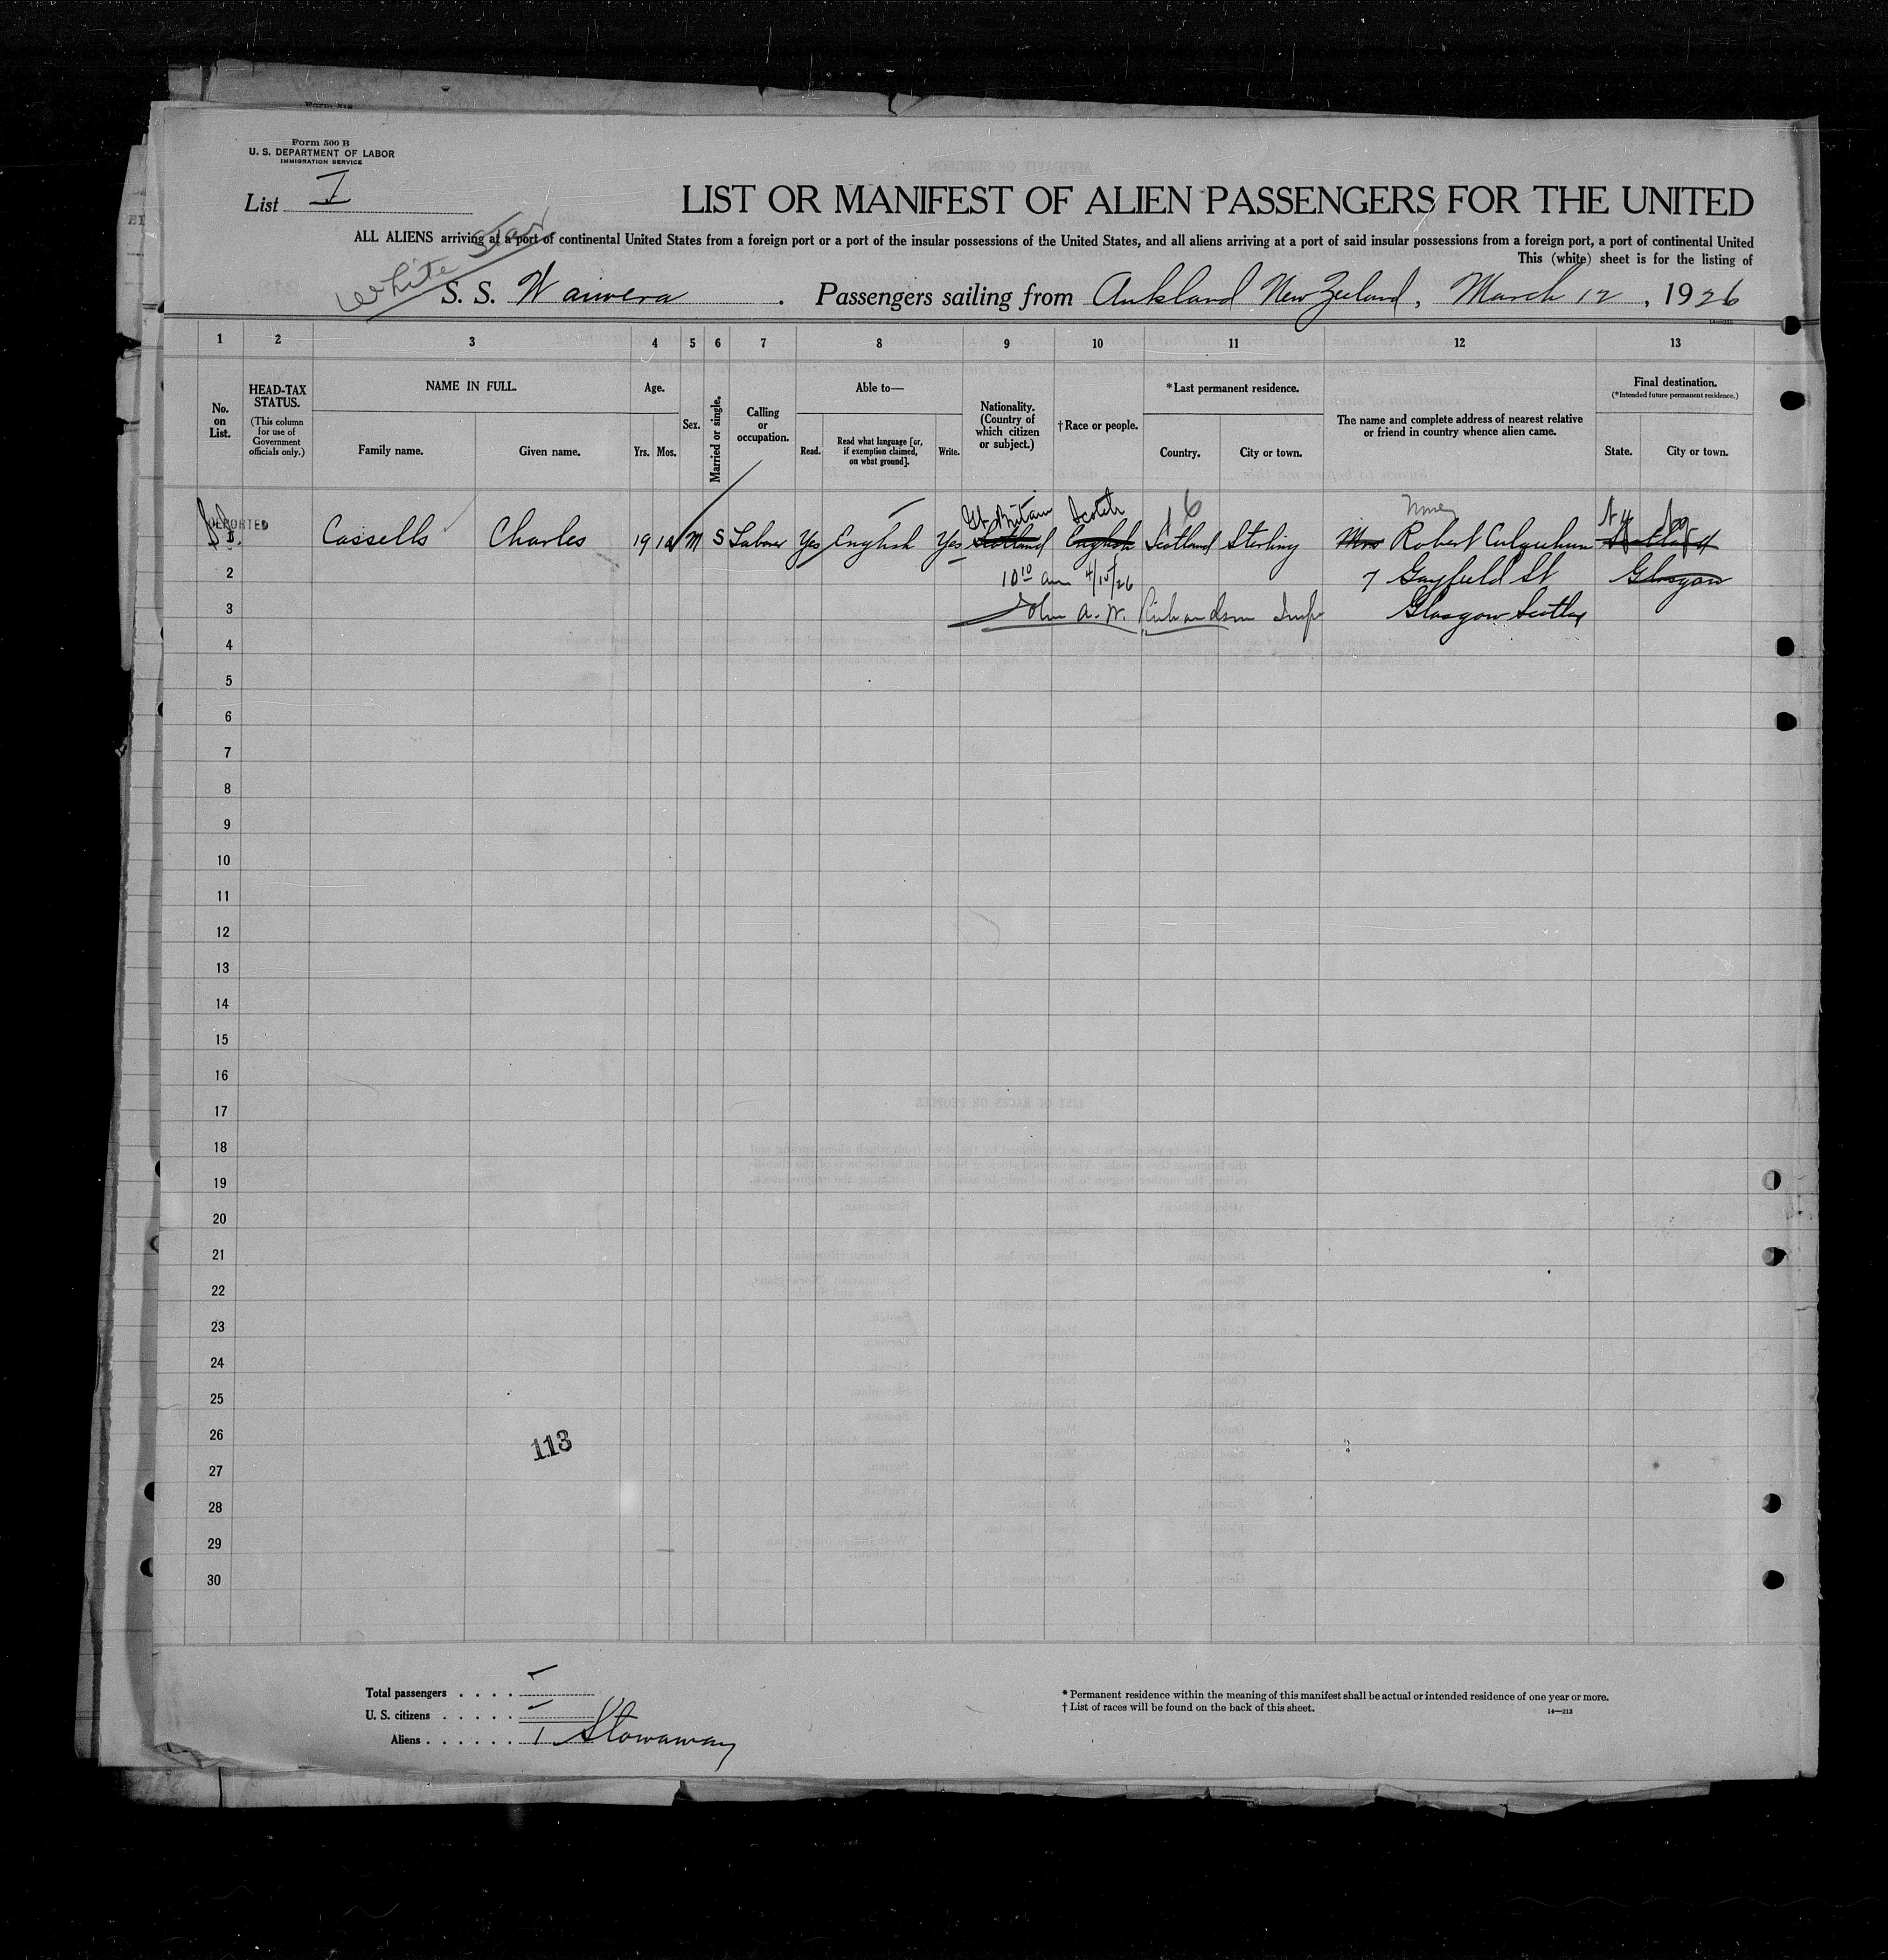 Form 500 B
U. S. DEPARTMENT OF LABOR
IMMIGRATION SERVICE
List I
LIST OR MANIFEST OF ALIEN PASSENGERS FOR THE UNITED
White Star
ALL ALIENS arriving at a port of continental United States from a foreign port or a port of the insular possessions of the United States, and all aliens arriving at a port of said insular possessions from a foreign port, a port of continental United
This (white) sheet is for the listing of
S. S. Waiwera . Passengers sailing from Aukland New Zeeland, March 12, 1926
1 2 3 4 5 6 7 8 9 10 11 12 13
No. on List.
HEAD-TAX STATUS.
(This column for use of Government officials only.)
NAME IN FULL.
Family name. Given name.
Age.
Yrs. Mos.
Sex.
Married or single.
Calling or occupation.
Able to—
Read. Read what language [or, if exemption claimed, on what ground]. Write.
Nationality. (Country of which citizen or subject.)
†Race or people.
*Last permanent residence.
Country. City or town.
The name and complete address of nearest relative or friend in country whence alien came.
Final destination.
(*Intended future permanent residence.)
State. City or town.
Gt Britain Scotch 6
DEPORTED
1 Cassells Charles 19 M S Laborer Yes English Yes Scotland English Scotland Sterling Mrs Robert Colquhun
2 10 10 am 4/10/26 7 Gayfield St Glasgow
3 John A. W. Richardson Insp Glasgow Scotland
4
5
6
7
8
9
10
11
12
13
14
15
16
17
18
19
20
21
22
23
24
25
26
27
28
29
30
113
Total passengers . . . .
U. S. citizens . . . . .
Aliens . . . . . . 1 Stowaway
* Permanent residence within the meaning of this manifest shall be actual or intended residence of one year or more.
† List of races will be found on the back of this sheet.
14—213